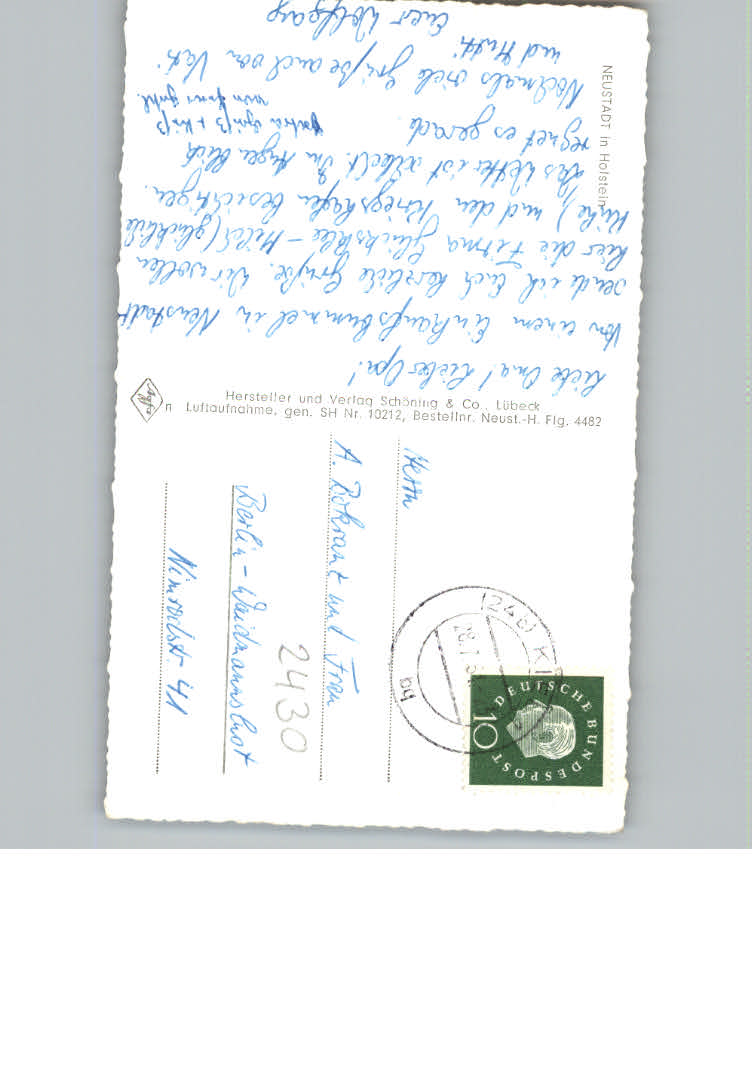 NEUSTADT in Holstein
Liebe Oma! Lieber Opa!
Von einem Einkaufsbummel in Neustadt
sende ich Euch herzliche Grüße. Wir wollen
hier die Firma Glücksklee-Milch (glückliche
Kühe) und den Kriegshafen besichtigen.
Das Wetter ist schlecht. Im Augenblick
regnet es gerade.
Nochmals viele Grüße auch von Vati
und Mutti.
Euer Wolfgang
Hersteller und Verlag Schöning & Co., Lübeck
Luftaufnahme, gen. SH Nr. 10212, Bestellnr. Neust.-H. Flg. 4482
Agfa
n
Herrn
A. Pokrant und Frau
Berlin-Waidmannslust
Nimrodstr. 41
2430
(24b) KI
28.7.6
bq
DEUTSCHE BUNDESPOST
10